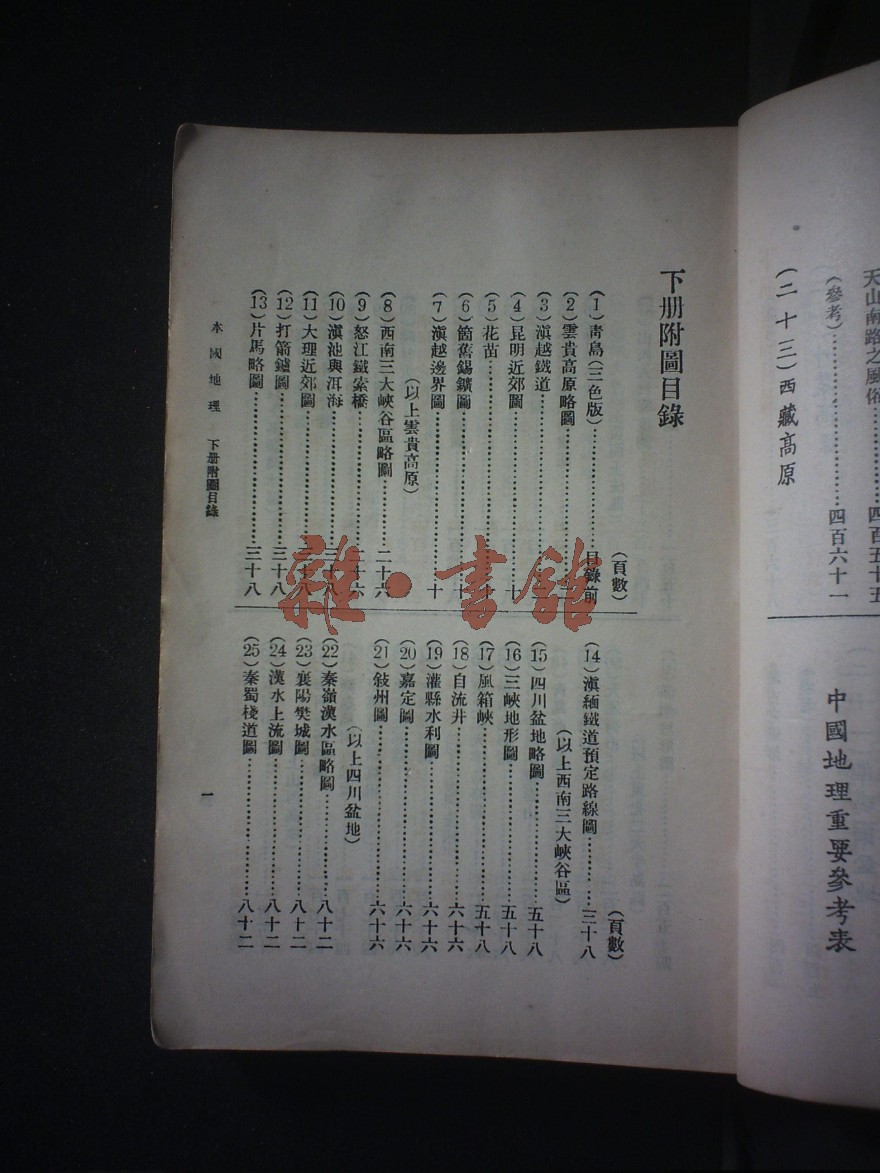 天山南路之風俗……四百五十五
（參考）……四百六十一
（二十三）西藏高原
中國地理重要參考表
下册附圖目錄
（頁數）
（1）青島（三色版）……目錄前
（2）雲貴高原略圖……
（3）滇越鐵道……十
（4）昆明近郊圖……十
（5）花苗……十
（6）箇舊錫鑛圖……十
（7）滇越邊界圖……十
（以上雲貴高原）
（8）西南三大峽谷區略圖……二十六
（9）怒江鐵索橋……二十六
（10）滇池與洱海……三十八
（11）大理近郊圖……三十八
（12）打箭鑪圖……三十八
（13）片馬略圖……三十八
（頁數）
（14）滇緬鐵道預定路線圖……三十八
（以上西南三大峽谷區）
（15）四川盆地略圖……五十八
（16）三峽地形圖……五十八
（17）風箱峽……五十八
（18）自流井……六十六
（19）灌縣水利圖……六十六
（20）嘉定圖……六十六
（21）敍州圖……六十六
（以上四川盆地）
（22）秦嶺漢水區略圖……八十二
（23）襄陽樊城圖……八十二
（24）漢水上流圖……八十二
（25）秦蜀棧道圖……八十二
本國地理 下册附圖目錄
一
雜·書館